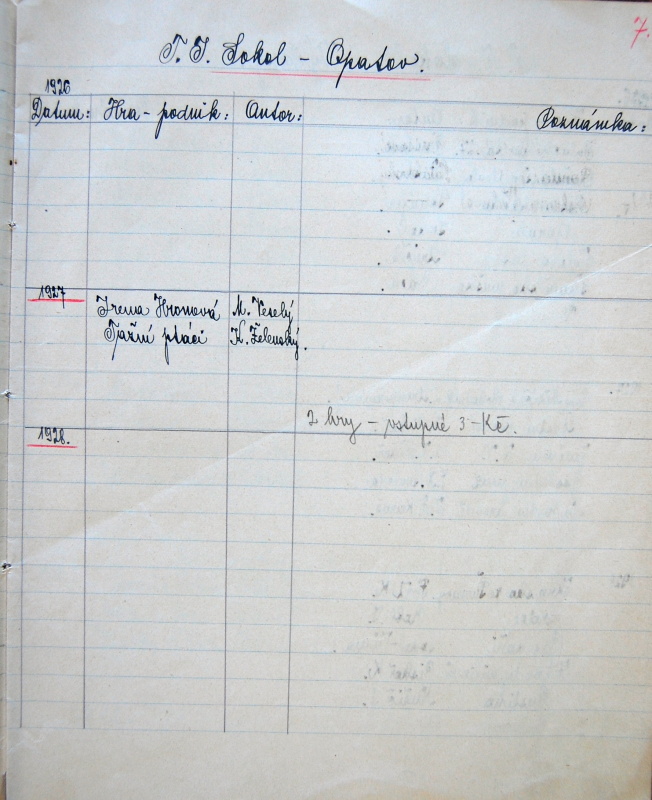 7.
T. J. Sokol - Opatov.
1926
Datum: Hra - podnik: Autor: Poznámka:
1927
Irena Hronová M. Veselý
Tažní ptáci K. Želenský.
2 hry - vstupné 3 - Kč.
1928.